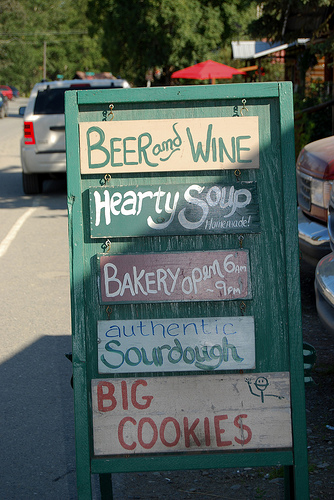 BEER and WINE
Hearty Soup
Homemade!
BAKERY open 6am
- 9pm
authentic
Sourdough
BIG
COOKIES